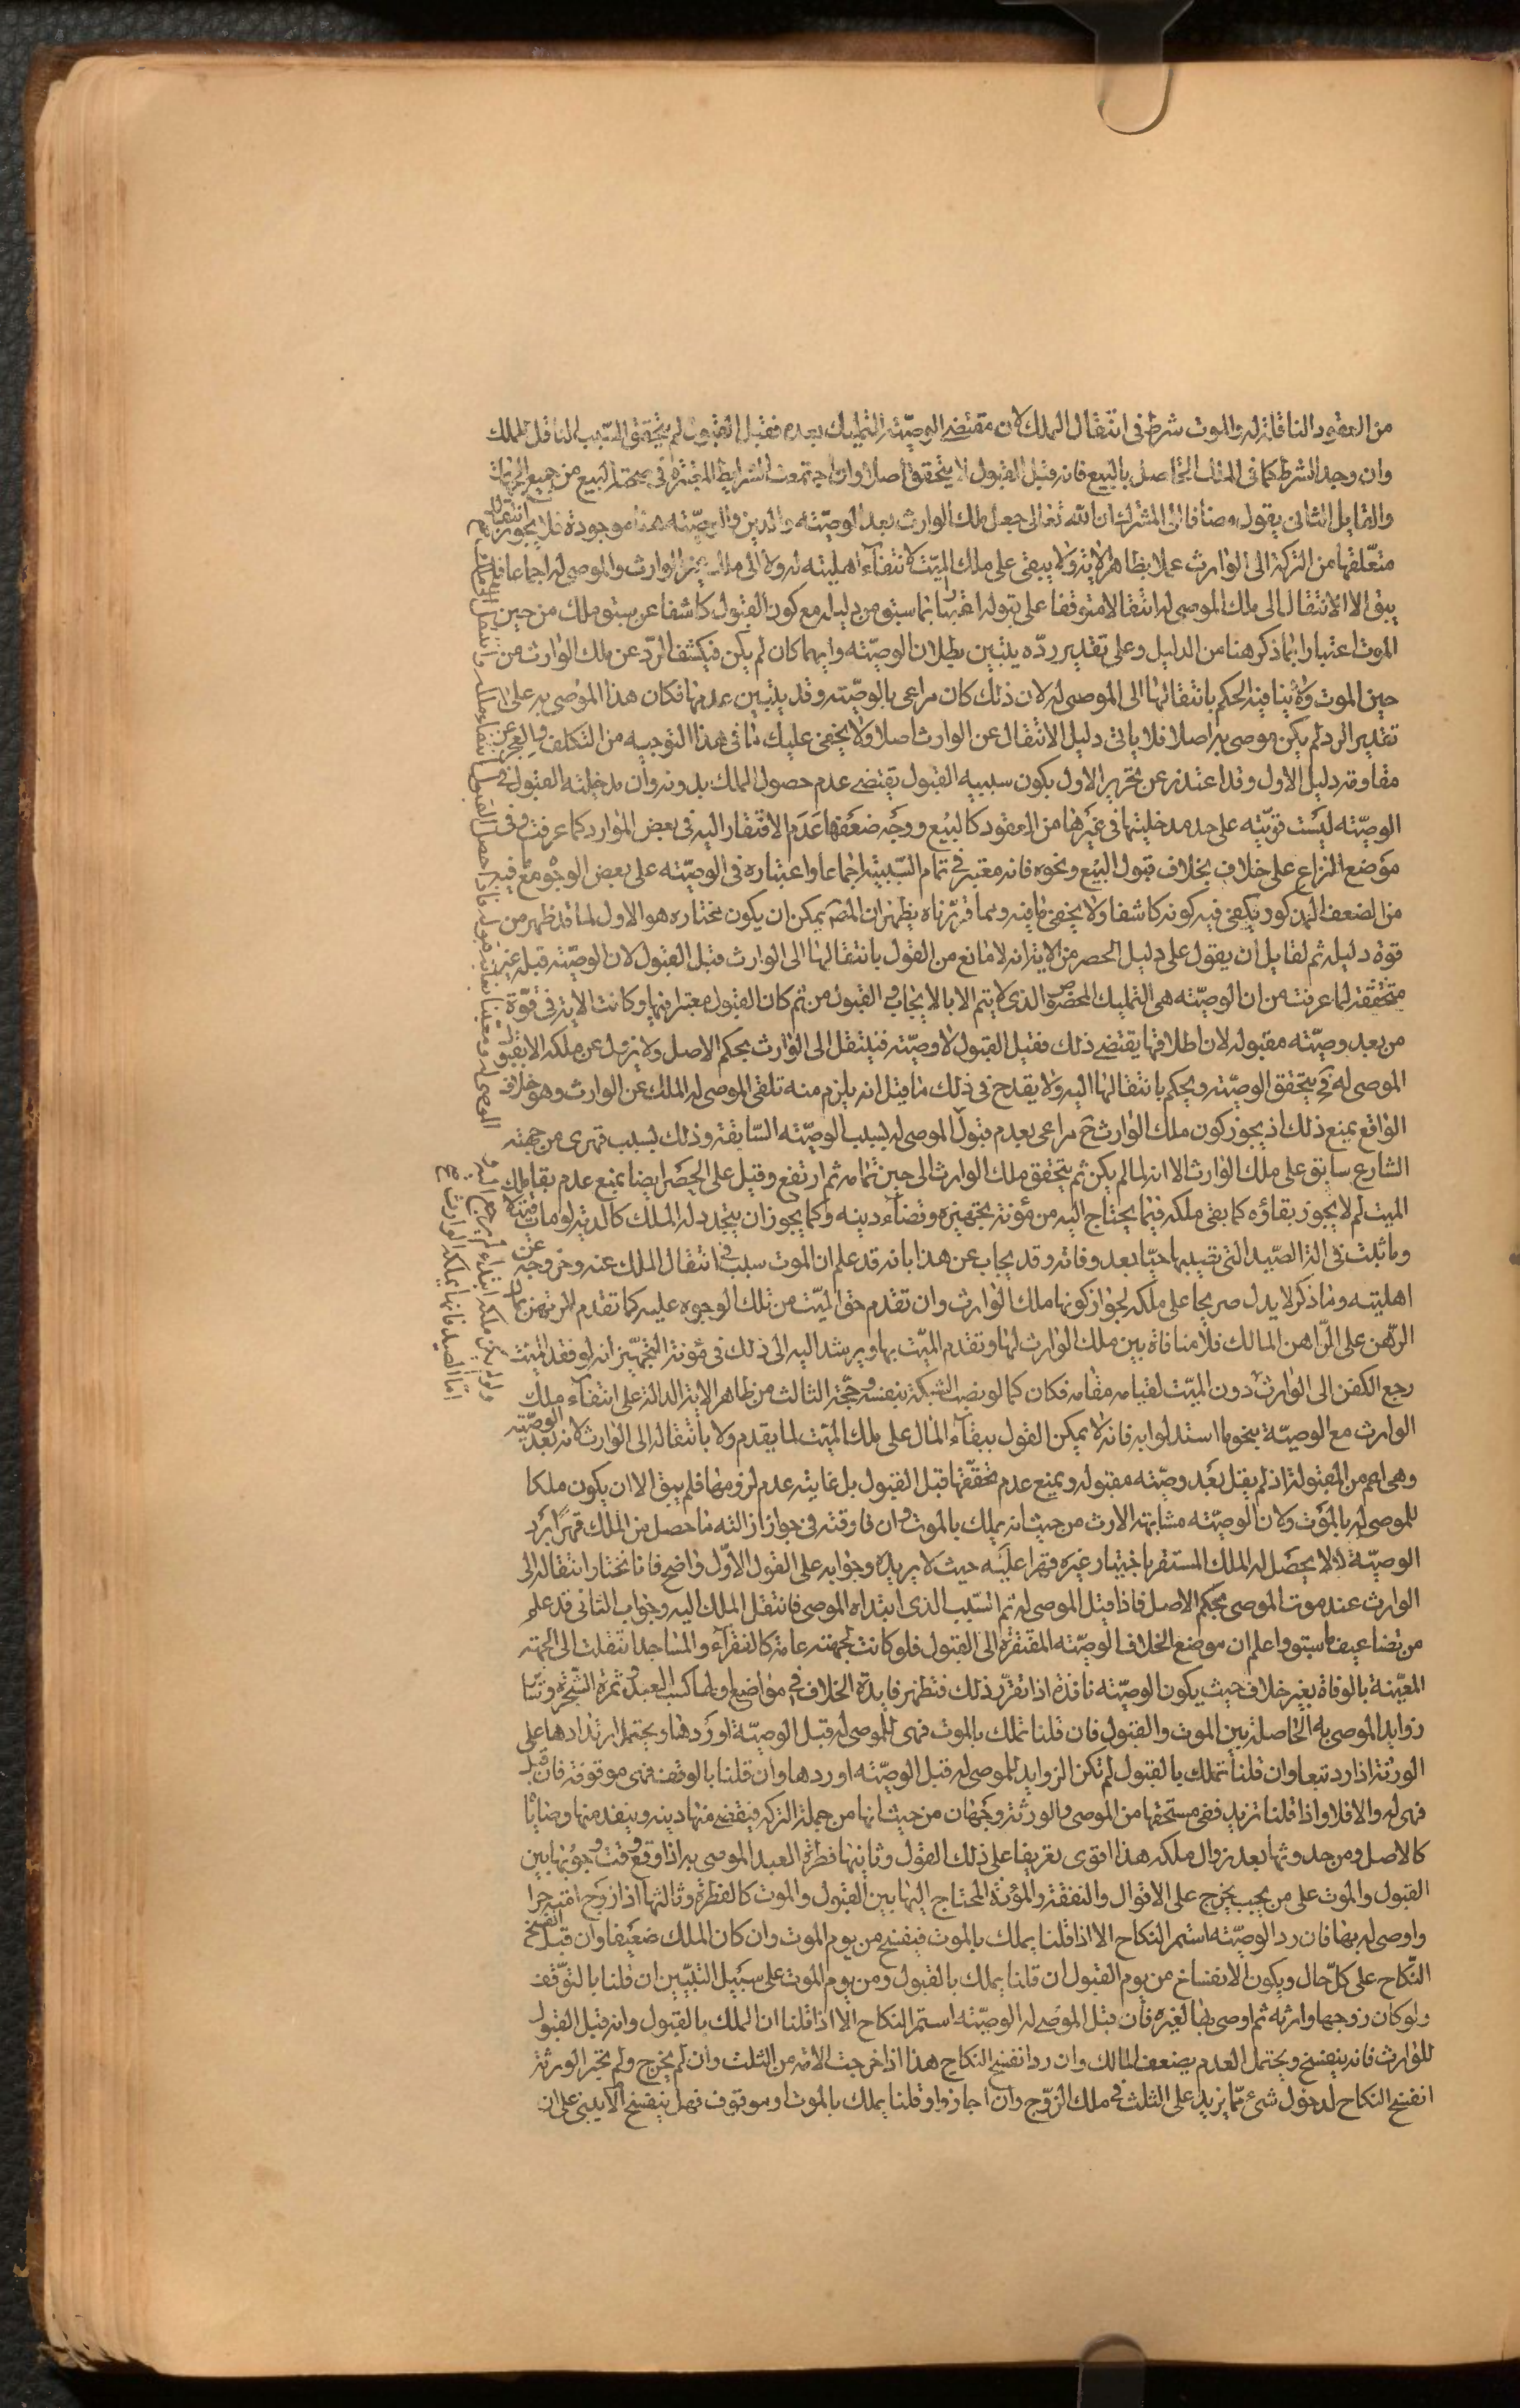 من العقود الناقلة له والموت شرط في انتقال الملك لان مقتضى الوصيّة التمليك بعده فقبل القبول لم يتحقق السّبب الناقل للملك
وان وجد الشرط كما في الملك الحاصل بالبيع فانه قبل القبول لا يتحقق اصلا وان اجتمعت الشرايط المعتبرة في صحة البيع من جميع الجهات
والقايل الثاني يقول مضافا الى المشترك ان الله تعالى جعل ملك الوارث بعد الوصيّة والدين والوصيّة هنا موجودة فلا يجوز انتقال
متعلقها من التركة الى الوارث عملا بظاهر الاية ولا يبقى على ملك الميّت لانتفاء اهليته له ولا الى مالك غير الوارث والموصى له اجماعا فلم
يبق الا الانتقال الى ملك الموصى له انتقالا متوقفا على قبوله اعتبارا بما سبق من دليله مع كون القبول كاشفا عن سبق ملك من حين
الموت اعتبارا بما ذكر هنا من الدليل وعلى تقدير ردّه يتبين بطلان الوصيّة وانها كان لم يكن فيكشف الردّ عن ملك الوارث من
حين الموت ولا ينافيه الحكم بانتقالها الى الموصى له لان ذلك كان مراعى بالوصيّة وقد يتبين عدمها فكان هذا الموصى به على
تقدير الرد لم يكن موصى به اصلا فلا ياتى دليل الانتقال عن الوارث اصلا ولا يخفى عليك ما في هذا التوجيه من التكلف والعجز عن
مقاومة دليل الاول وقد اعتذر عن تحرير الاول بكون سببيه القبول يقتضى عدم حصول الملك بدونه وان مدخليته القبول في
الوصيّة ليست قويّة على حد مدخليتها في غيرها من العقود كالبيع ووجه ضعفها عدم الافتقار اليه في بعض الموارد كما عرفت وفي
موضع النزاع على خلاف بخلاف قبول البيع ونحوه فانه معتبر في تمام السّببية اجماعا واعتباره في الوصيّة على بعض الوجوه مع فيه
من الضعف المذكور ويكفى فيه كونه كاشفا ولا يخفى ما فيه ومما قررناه يظهر ان المصّ يمكن ان يكون مختاره هو الاول لما قد ظهر من
قوة دليله ثم لقايل ان يقول على دليل الحصر من الاية انه لا مانع من القول بانتقالها الى الوارث قبل القبول لان الوصيّة قبله غير
متحققة لما عرفت من ان الوصيّة هي التمليك المخصوص الذى لا يتم الا بالايجاب والقبول من ثم كان القبول معتبرا فيها وكانت الاية في قوّة
من بعد وصيّة مقبولة لان اطلاقها يقتضى ذلك فقبل القبول لا وصيّة فينتقل الى الوارث بحكم الاصل ولا يزول عن ملكه الا بقبول
الموصى له فح يتحقق الوصيّة ويحكم بانتقالها اليه ولا يقدح في ذلك ما قيل انه يلزم منه تلقى الموصى له الملك عن الوارث وهو خلاف
الواقع بمنع ذلك اذ يجوز كون ملك الوارث ح مراعى بعدم قبول الموصى له بسبب الوصيّة السّابقة وذلك بسبب قهرى من جهة
الشارع سابق على ملك الوارث الا انه لما لم يكن ثم يتحقق ملك الوارث الى حين تمامه ثم ارتفع وقيل على الحصر ايضا بمنع عدم بقاء ملك
الميت لم لا يجوز بقاؤه كما بقى ملكه فيما يحتاج اليه من مؤنة تجهيزه وقضاء دينه وكما يجوز ان يتجدد له الملك كالدية لو مات
وما ثبت في الة الصّيد التى نصبها حيّا بعد وفاته وقد يجاب عن هذا بانه قد علم ان الموت سبب في انتقال الملك عنه وخروجه عن
اهليته وما ذكر لا يدل صريحا على ملكه لجواز كونها ملك الوارث وان تقدم حق الميّت من تلك الوجوه عليه كما تقدم المرتهن
الرّهن على الرّاهن المالك فلا منافاة بين ملك الوارث لها وتقدم الميّت بها ويرشد اليه الى ذلك في مؤنة التجهيز انه لو فقد الميت
رجع الكفن الى الوارث دون الميّت لقيامه مقامه فكان كما لو نصب الشبكة بنفسه وحجّة الثالث من ظاهر الاية الدالة على انتفاء ملك
الوارث مع الوصيّة بنحو ما استدلوا به فانه لا يمكن القول ببقاء المال على ملك الميّت لما يقدم ولا بانتقاله الى الوارث لانه بعد الوصيّة
وهي اعم من المقبولة اذ لم يقل بعد وصيّة مقبولة وبمنع عدم تحققها قبل القبول بل غايته عدم لزومها فلم يبق الا ان يكون ملكا
للموصى له بالموت ولان الوصيّة مشابهة الارث من حيث انه يملك بالموت وان فارقته في جواز ازالته ما حصل من الملك قهرا برد
الوصيّة لئلا يحصل له الملك المستقر باختيار غيره قهرا عليه حيث لا يريده وجوابه على القول الاوّل واضح فانا نختار انتقاله الى
الوارث عند موت الموصى بحكم الاصل فاذا قبل الموصى له ثم السّبب الذى ابتداه الموصى فانتقل الملك اليه وجواب الثانى قد علم
من تضاعيف ما سبق واعلم ان موضع الخلاف الوصيّة المفتقرة الى القبول فلو كانت لجهة عامة كالفقرآء والمساجد انتقلت الى الجهة
المعيّنة بالوفاة بغير خلاف حيث يكون الوصيّة نافذة اذا تقرّر ذلك فتظهر فايدة الخلاف في مواضع اولها كسب العبد وثمرة الشّجرة وساير
زوايد الموصى به الحاصلة بين الموت والقبول فان قلنا تملك بالموت فهى للموصى له قبل الوصيّة او ردها ويحتمل ارتدادها على
الورثة اذا رد تبعا وان قلنا تملك بالقبول لم تكن الزوايد للموصى له قبل الوصيّة او ردها وان قلنا بالوقف فهى موقوفة فان قبل
فهى له والا فلا واذا قلنا تزيد ففى مستحقها من الموصى والورثة وجهان من حيث انها من جملة التركة فيقضى منها دينه وينفذ منها وصاياه
كالاصل ومن حدوثها بعد زوال ملكه هذا اقوى تفريعا على ذلك القول وثانيها فطرة العبد الموصى به اذا وقع وقت وجوبها بين
القبول والموت على من يجب يخرج على الاقوال والنفقة والمؤنة المحتاج اليها بين القبول والموت كالفطرة وثالثها اذا زوج امته حرا
واوصى له بها فان رد الوصيّة استمر النكاح الا اذا قلنا يملك بالموت فينفسخ من يوم الموت وان كان الملك ضعيفا وان قبل انفسخ
النّكاح على كلّ حال ويكون الانفساخ من يوم القبول ان قلنا يملك بالقبول ومن يوم الموت على سبيل التبيّن ان قلنا بالتوّقف
ولو كان زوجها وارثه ثم اوصى بها لغيره فان قبل الموصى له الوصيّة استمر النكاح الا اذا قلنا ان الملك بالقبول وانه قبل القبول
للوارث فانه ينفسخ ويحتمل العدم بضعف المالك وان رد انفسخ النكاح هذا اذا خرجت الامة من الثلث وان لم يخرج ولم تجز الورثة
انفسخ النكاح لدخول شئ مّما يزيد على الثلث في ملك الزوّج وان اجازوا وقلنا يملك بالموت او موقوف فهل ينفسخ ام لا يبنى على ان